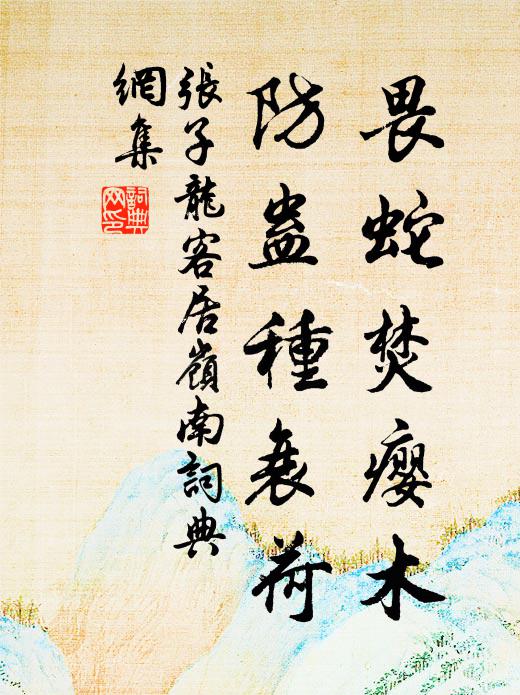 畏蛇焚癭木
防蛊種蘘荷
張子龍客居嶺南詞典
網集
詞典
网印